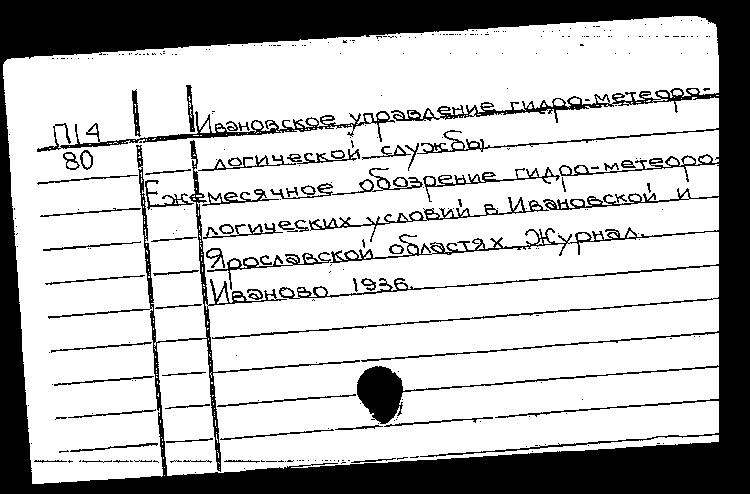 П14
80
Ивановское управление гидро-метеоро-
логической службы.
Ежемесячное обозрение гидро-метеоро-
логических условий в Ивановской и
Ярославской областях. Журнал.
Иваново 1936.